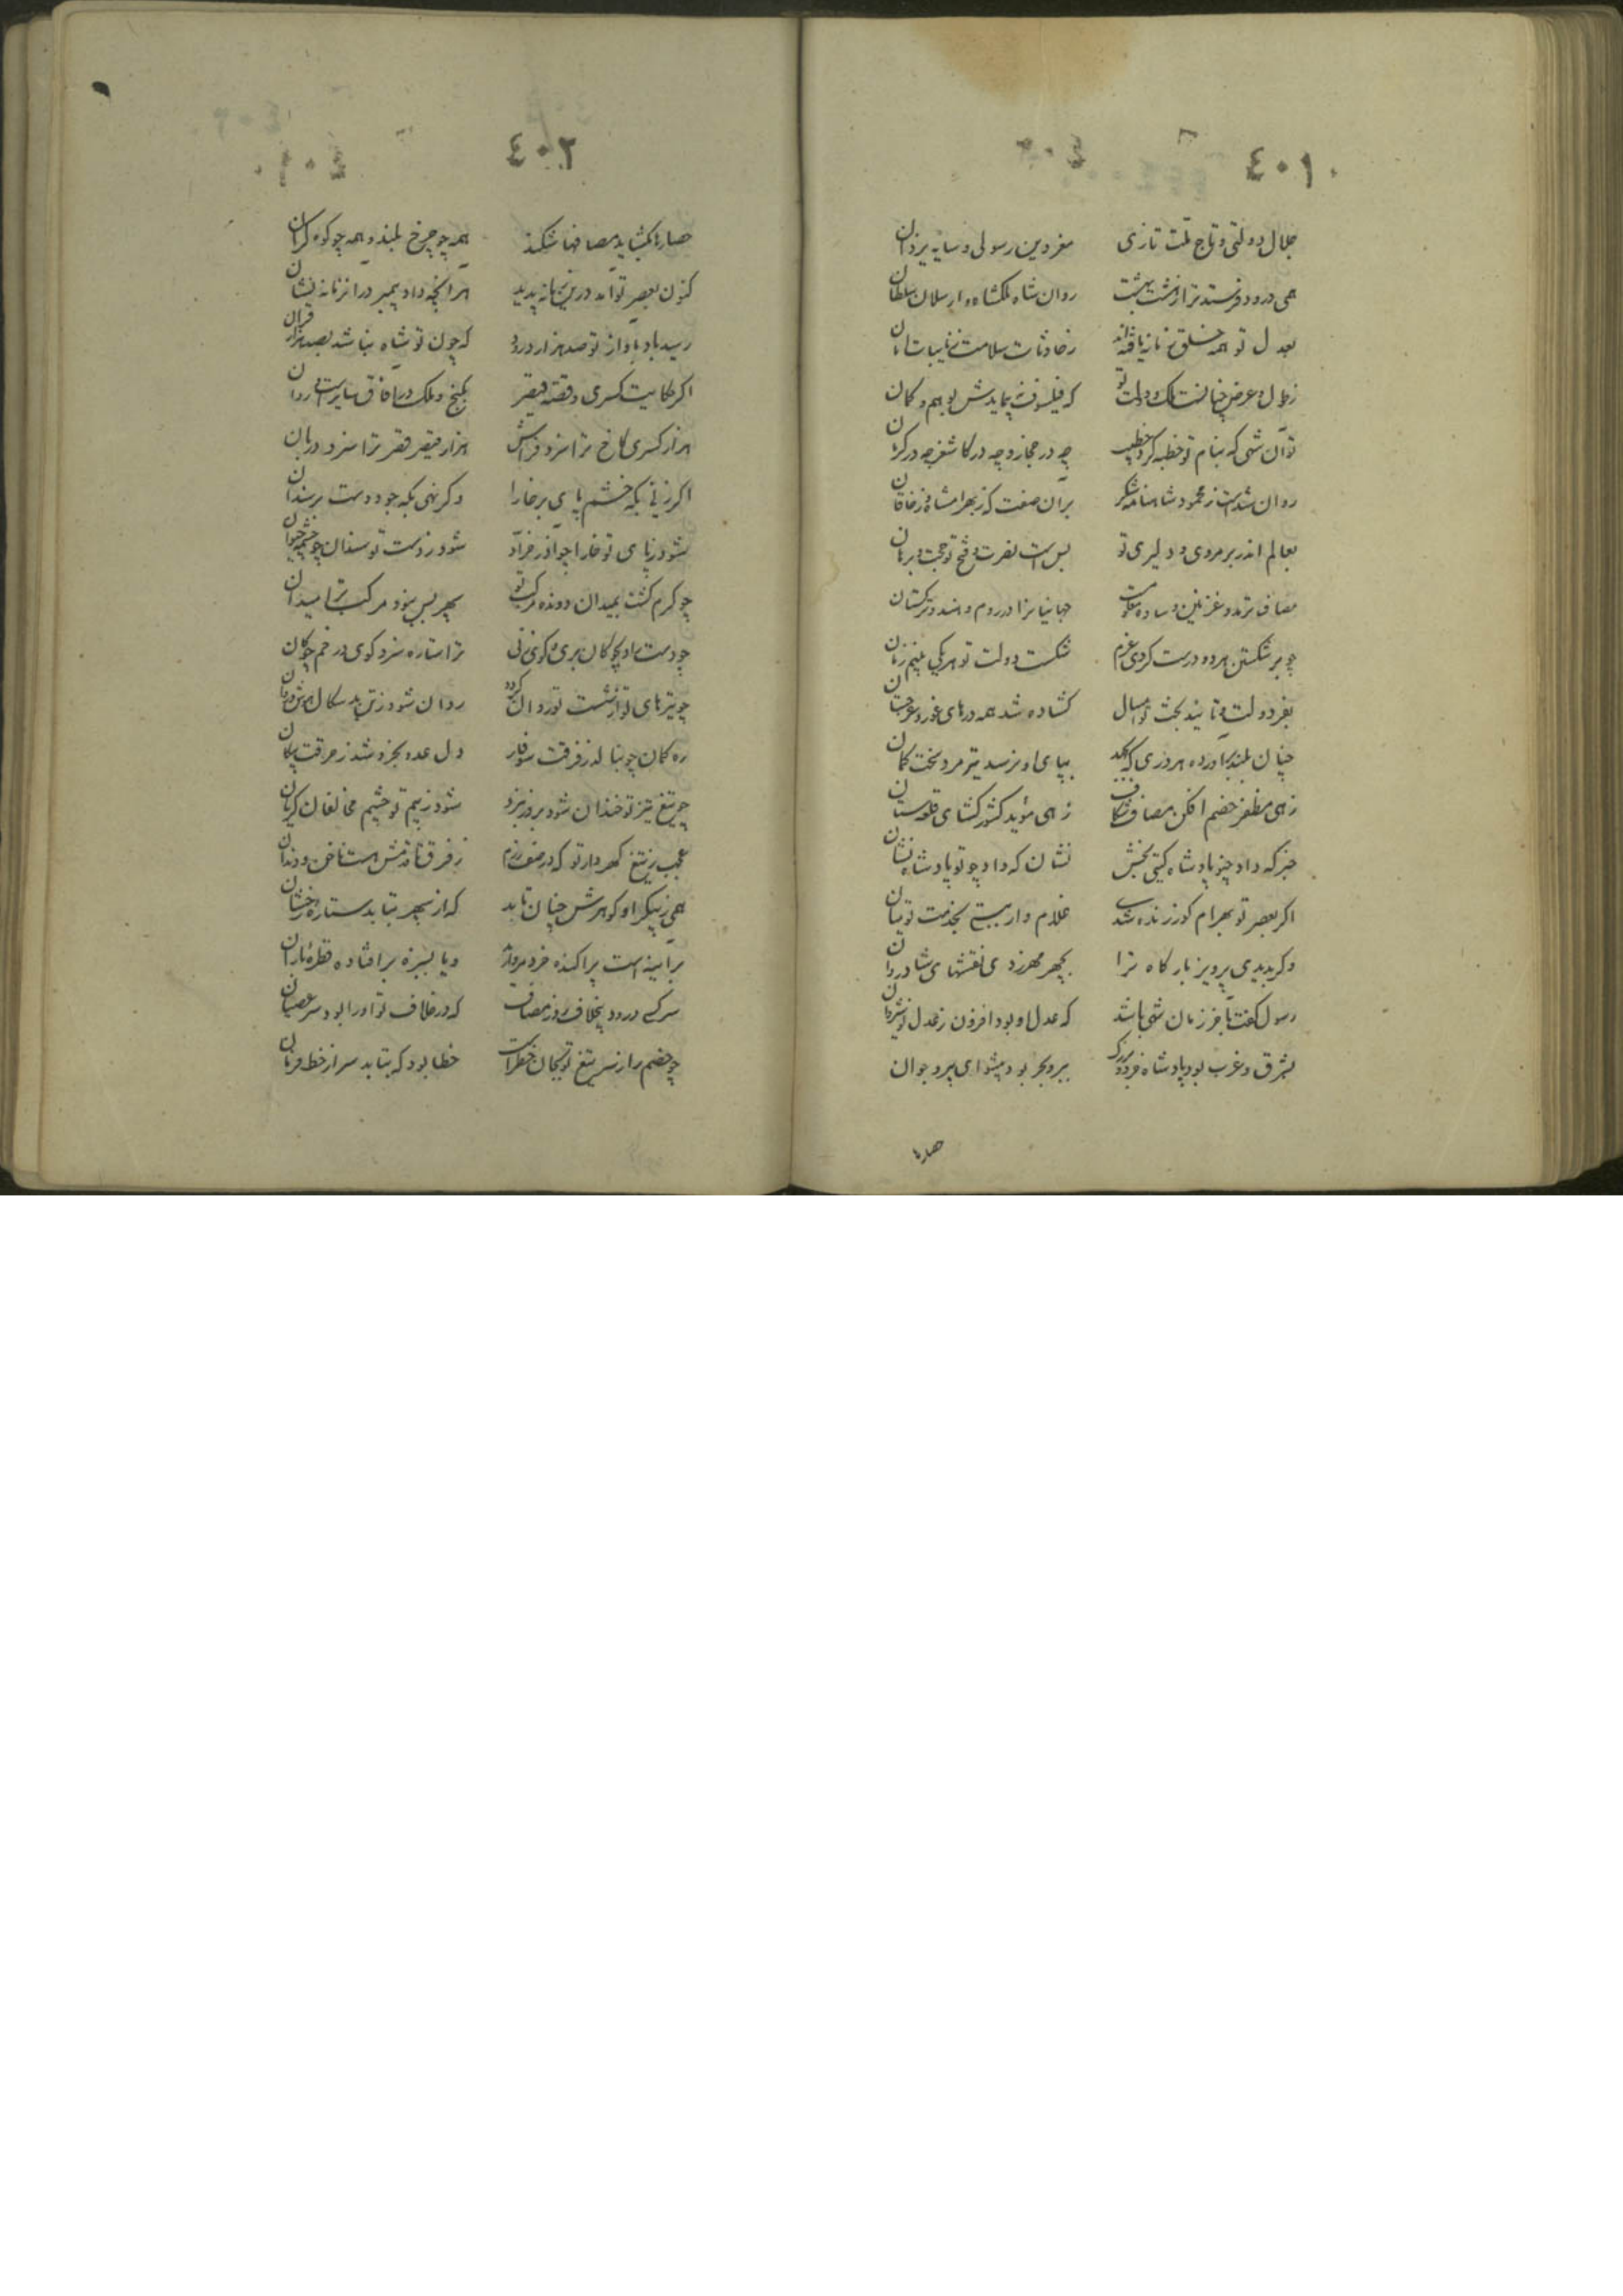 ٤٠١
جلال دولتی و تاج ملت تازی مغز دین رسولی و سایه یزدان
همی درود فرستد ترا ز هشت بهشت روان شاه ملکشاه و ارسلان سلطان
بعدل تو همه خلق زمانه یافته‌اند ز حادثات سلامت ز نایبات امان
ز طول و عرض چنانست ملک و دولت تو که فیلسوف نپیمایدش بوهم و گمان
تو آن شهی که بنام تو خطبه کرد خطیب چه در حجاز و چه در کاشغر چه در کرمان
روان شدست ز محمود شاهنامه شکر بر آن صفت که ز بهرامشاه و ز خاقان
بعالم اندر بر مردی و دلیری تو بس است نصرت و فتح تو حجت و برهان
مصاف ترمد و غزنین و ساوه جهانیانرا در روم و هند و ترکستان
چو بر شکستن هر دو درست کردی عزم شکست دولت تو هر یکی بنیم زمان
بفر دولت و تایید بخت تو امسال کشاده شد همه درهای غور و غرجستان
چنان بلند برآورده هر دزی که بپای او نرسد تیر مرد سخت کمان
زهی مظفر خصم افکن مصاف شکاف زهی موید کشور کشای قلعه ستان
خبر که داد چنو پادشاه گیتی بخش نشان که داد چو تو پادشاه نشان
اکر بعصر تو بهرام کور زنده شدی غلام وار ببستی بخدمت تو میان
وکر بدیدی پرویز بارگاه ترا بچهر مهر زدی نقشهای شادروان
رسول گفت بآخر زمان شهی باشد که عدل او بود افزون ز عدل نوشروان
بشرق و غرب بود پادشاه خرد و بزرگ ببر و بحر بود پیشوای پیر و جوان
حصارها
٤٠٢
حصارها بکشاید مصافها شکند همه چو چرخ بلند و همه چو کوه کران
کنون بعصر تو آمد درین زمانه پدید هر آنچه داد پیمبر در آن زمانه نشان
رسید باد بآواز تو صد هزار درود که چون تو شاه نباشد بصد هزار قران
اکر حکایت کسری و قصه قیصر بگنج و ملک در آفاق سایرست و روان
هزار کسری کاخ ترا سزد فراش هزار قیصر قصر ترا سزد دربان
اکر زنی بگه خشم پای بر خارا وکر نهی بگه جود دست بر سندان
شود ز پای تو خارا چو شود ز دست تو سندان چو چشمه حیوان
چو گرم گشت بمیدان دونده مرکب تو سپهر بس بود مرکب ترا میدان
چو دست سوی چوگان بری و گوی زنی ترا ستاره سزد گوی در خم چوگان
چو تیرهای تو از شست تو روان گردد روان شود ز تن بد سگال
ره کمان چو بنالد ز فرقت سوفار دل عدو بخروشد ز حرقت پیکان
چو تیغ تیز تو خندان شود بروز نبرد شود ز بیم تو چشم مخالفان گریان
عجب ز تیغ گهردار تو که در صف رزم ز فرق تا قدمش هست ناخن و دندان
همی ز پیکر او گوهرش چنان تابد که از سپهر بتابد ستاره رخشان
بر آینه است پراکنده خرد مروارید ویا بسبزه بر افتاده قطره باران
سر کسی درود بیخلاف روز مصاف که در خلاف تو او را بود سر عصیان
چو خصم را ز سر تیغ تو بجان خطر است خطا بود که بتابد سر از خط فرمان